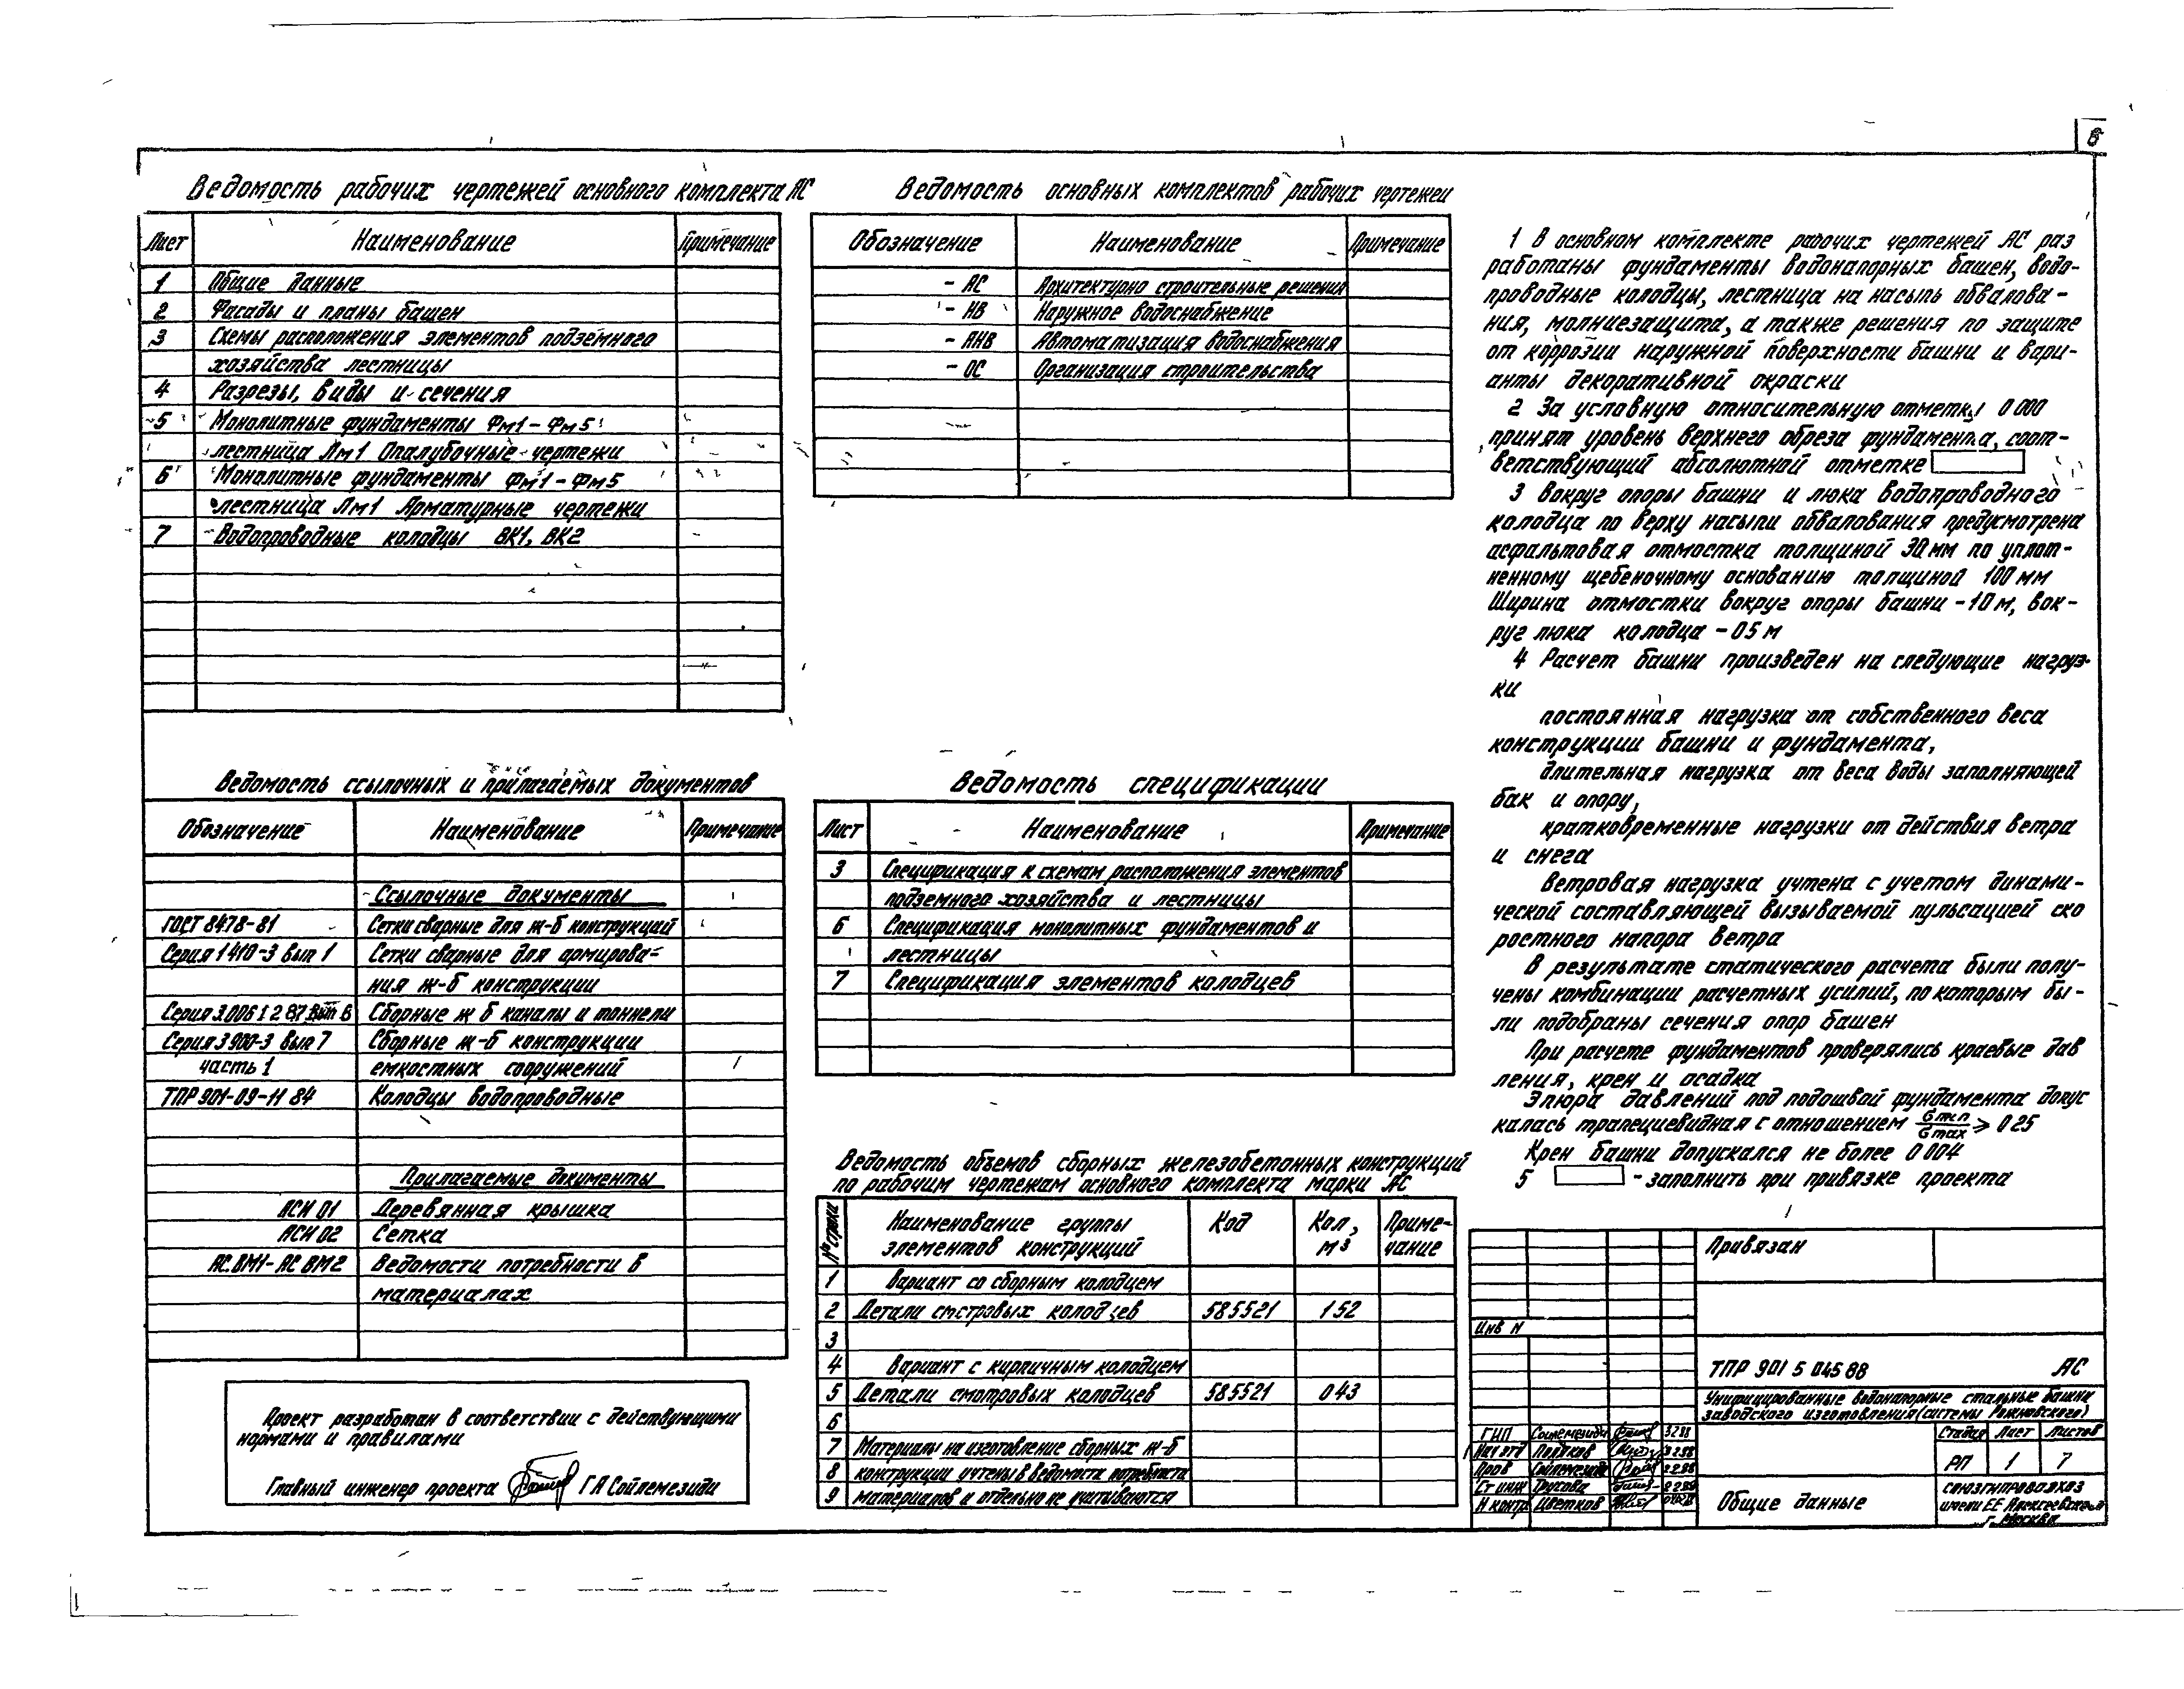 6
Ведомость рабочих чертежей основного комплекта АС
Лист Наименование Примечание
1 Общие данные
2 Фасады и планы башен
3 Схемы расположения элементов подземного
хозяйства лестницы
4 Разрезы, виды и сечения
5 Монолитные фундаменты Фм1-Фм5
лестница Лм1 Опалубочные чертежи
6 Монолитные фундаменты Фм1-Фм5
лестница Лм1 Арматурные чертежи
7 Водопроводные колодцы ВК1, ВК2
Ведомость основных комплектов рабочих чертежей
Обозначение Наименование Примечание
- АС Архитектурно строительные решения
- НВ Наружное водоснабжение
- АНВ Автоматизация водоснабжения
- ОС Организация строительства
Ведомость ссылочных и прилагаемых документов
Обозначение Наименование Примечание
Ссылочные документы
ГОСТ 8478-81 Сетки сварные для ж-б конструкций
Серия 1 410-3 вып 1 Сетки сварные для армирова-
ния ж-б конструкции
Серия 3.006 1 2 87 вып 6 Сборные ж б каналы и тоннели
Серия 3 900-3 вып 7 Сборные ж-б конструкции
часть 1 емкостных сооружений
ТПР 901-09-11 84 Колодцы водопроводные
Прилагаемые документы
АСИ 01 Деревянная крышка
АСИ 02 Сетка
АС.ВМ1- АС ВМ2 Ведомости потребности в
материалах
Проект разработан в соответствии с действующими
нормами и правилами
Главный инженер проекта Г А Сойлемезиди
Ведомость спецификации
Лист Наименование Примечание
3 Спецификация к схемам расположения элементов
подземного хозяйства и лестницы
6 Спецификация монолитных фундаментов и
лестницы
7 Спецификация элементов колодцев
Ведомость объемов сборных железобетонных конструкций
по рабочим чертежам основного комплекта марки АС
№ строки Наименование группы элементов конструкций Код Кол, м³ Приме-чание
1 Вариант со сборным колодцем
2 Детали смстровых колодцев 585521 1 52
3
4 Вариант с кирпичным колодцем
5 Детали смотровых колодцев 585521 0 43
6
7 Материалы на изготовление сборных ж-б
8 конструкции учтены в ведомости потребности
9 материалов и отдельно не учитываются
1 В основном комплекте рабочих чертежей АС раз
работаны фундаменты водонапорных башен, водо-
проводные колодцы, лестница на насыпь обвалова-
ния, молниезащита, а также решения по защите
от коррозии наружной поверхности башни и вари-
анты декоративной окраски
2 За условную относительную отметку 0 000
принят уровень верхнего обреза фундамента, соот-
ветствующий абсолютной отметке
3 Вокруг опоры башни и люка водопроводного
колодца по верху насыпи обвалования предусмотрена
асфальтовая отмостка толщиной 30 мм по уплот-
ненному щебеночному основанию толщиной 100 мм
Ширина отмостки вокруг опоры башни - 1 0 м, вок-
руг люка колодца - 0 5 м
4 Расчет башни произведен на следующие нагруз-
ки
постоянная нагрузка от собственного веса
конструкции башни и фундамента,
длительная нагрузка от веса воды заполняющей
бак и опору,
кратковременные нагрузки от действия ветра
и снега
Ветровая нагрузка учтена с учетом динами-
ческой составляющей вызываемой пульсацией ско
ростного напора ветра
В результате статического расчета были полу-
чены комбинации расчетных усилий, по которым бы-
ли подобраны сечения опор башен
При расчете фундаментов проверялись краевые дав
ления, крен и осадка
Эпюра давлений под подошвой фундамента допус
калась трапециевидная с отношением σmin/σmax ⩾ 0 25
Крен башни допускался не более 0 004
5 - заполнить при привязке проекта
Привязан
Инв N
ТПР 901 5 045 88 АС
Унифицированные водонапорные стальные башни
заводского изготовления (системы Рожновского)
Стадия Лист Листов
РП 1 7
Общие данные
СОЮЗГИПРОВОДХОЗ
имени Е Е Алексеевского
г. Москва
ГИП Сойлемезиди 3 2 88
Нач отд
Пров Сойлемезиди 2 2 88
Ст инж Трусова 2 2 88
Н контр Цветков